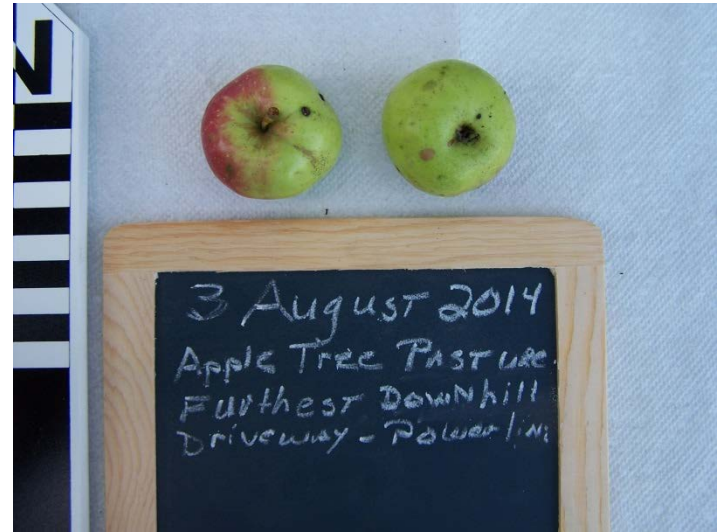 3 August 2014
Apple Tree Pasture
Furthest Downhill
Driveway - Powerline